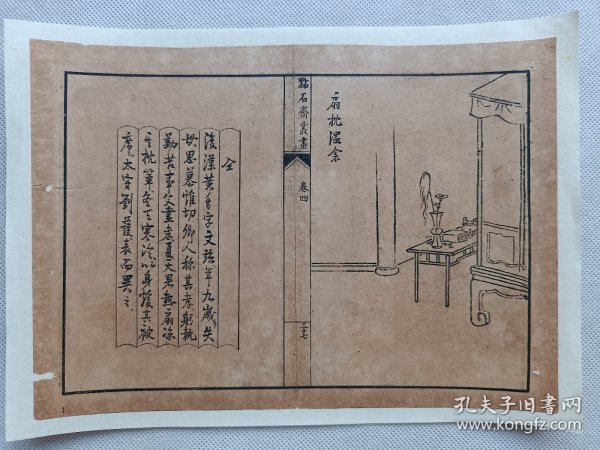 扇枕温衾
點石齋叢畫
卷四
仝
後漢黄香字文強年九歲失
母思慕惟切鄉人称其孝躬執
勤苦事父盡孝夏天暑熱扇涼
其枕簟冬天寒冷以身煖其被
席太守劉護表而異之
孔夫子旧书网
www.kongfz.com